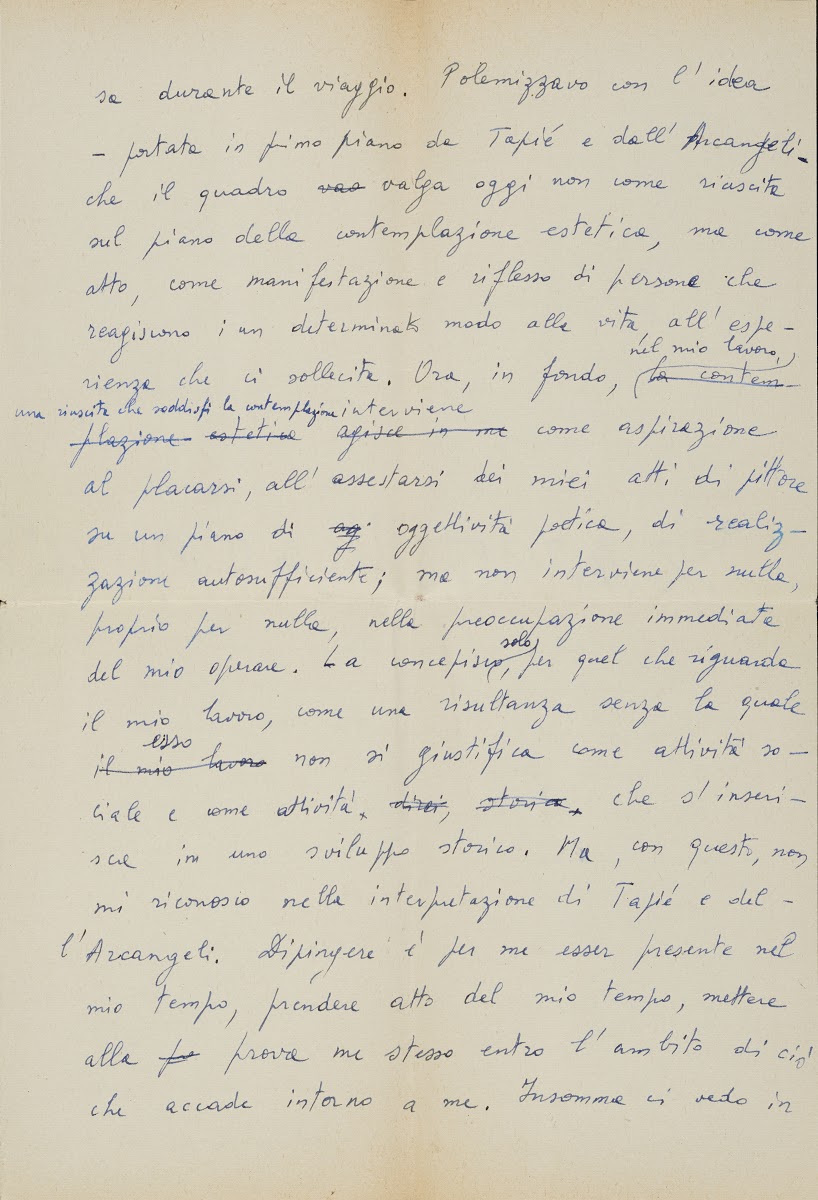 sa durante il viaggio. Polemizzavo con l'idea
– portata in primo piano da Tapié e dall'Arcangeli –
che il quadro vao valga oggi non come riuscita
sul piano della contemplazione estetica, ma come
atto, come manifestazione e riflesso di persone che
reagiscono i un determinato modo alla vita, all'espe-
nel mio lavoro,
rienza che ci sollecita. Ora, in fondo, la contem-
una riuscita che soddisfi la contemplazione interviene
plazione estetica agisce in me come aspirazione
al placarsi, all'assestarsi dei miei atti di pittore
su un piano di og oggettività poetica, di realiz-
zazione autosufficiente; ma non interviene per nulla,
proprio per nulla, nella preoccupazione immediata
solo
del mio operare. La concepisco, per quel che riguarda
il mio lavoro, come una risultanza senza la quale
esso
il mio lavoro non si giustifica come attività so-
ciale e come attività, direi, storica, che s'inseri-
sce in uno sviluppo storico. Ma, con questo, non
mi riconosco nella interpretazione di Tapié e del-
l'Arcangeli. Dipingere è per me esser presente nel
mio tempo, prendere atto del mio tempo, mettere
alla po prova me stesso entro l'ambito di ciò
che accade intorno a me. Insomma ci vedo in